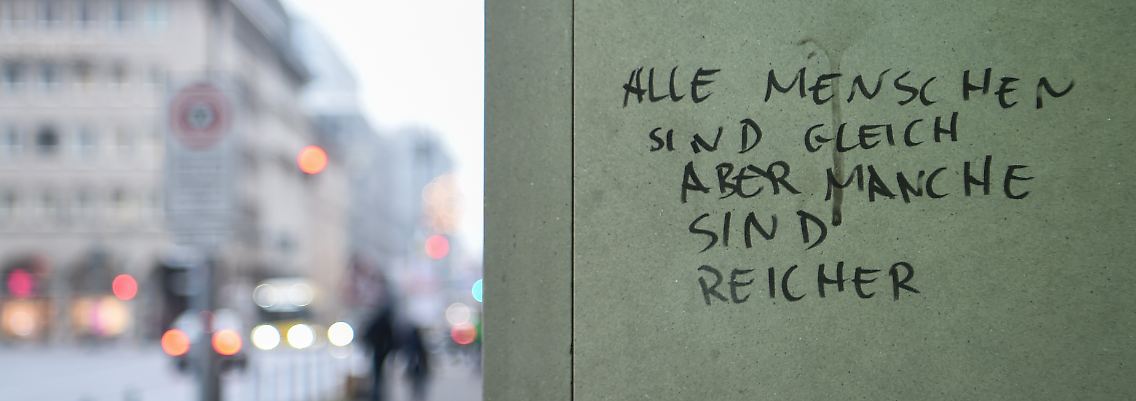 ALLE MENSCHEN
SIND GLEICH
ABER MANCHE
SIND
REICHER